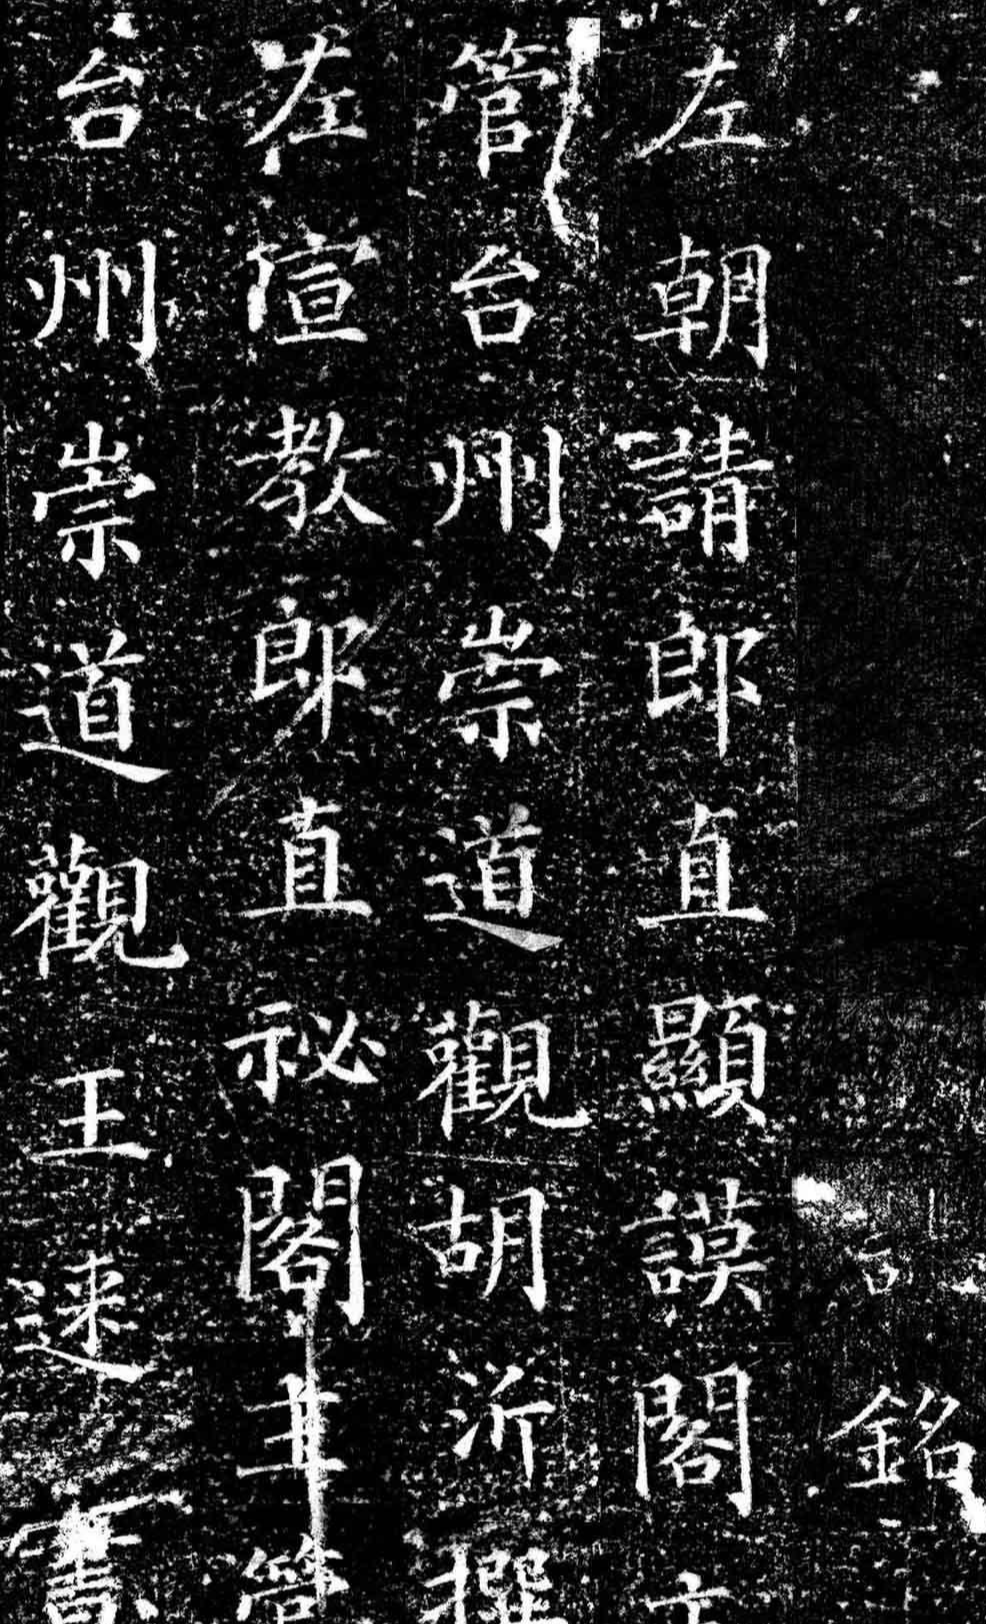 銘
左朝請郎直顯謨閣主
管台州崇道觀胡沂撰
左宣教郎直祕閣主管
台州崇道觀王速書